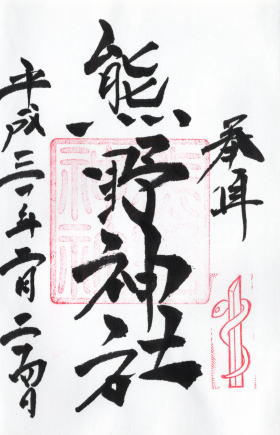 奉拝
熊野神社
平成三一年二月二十四日